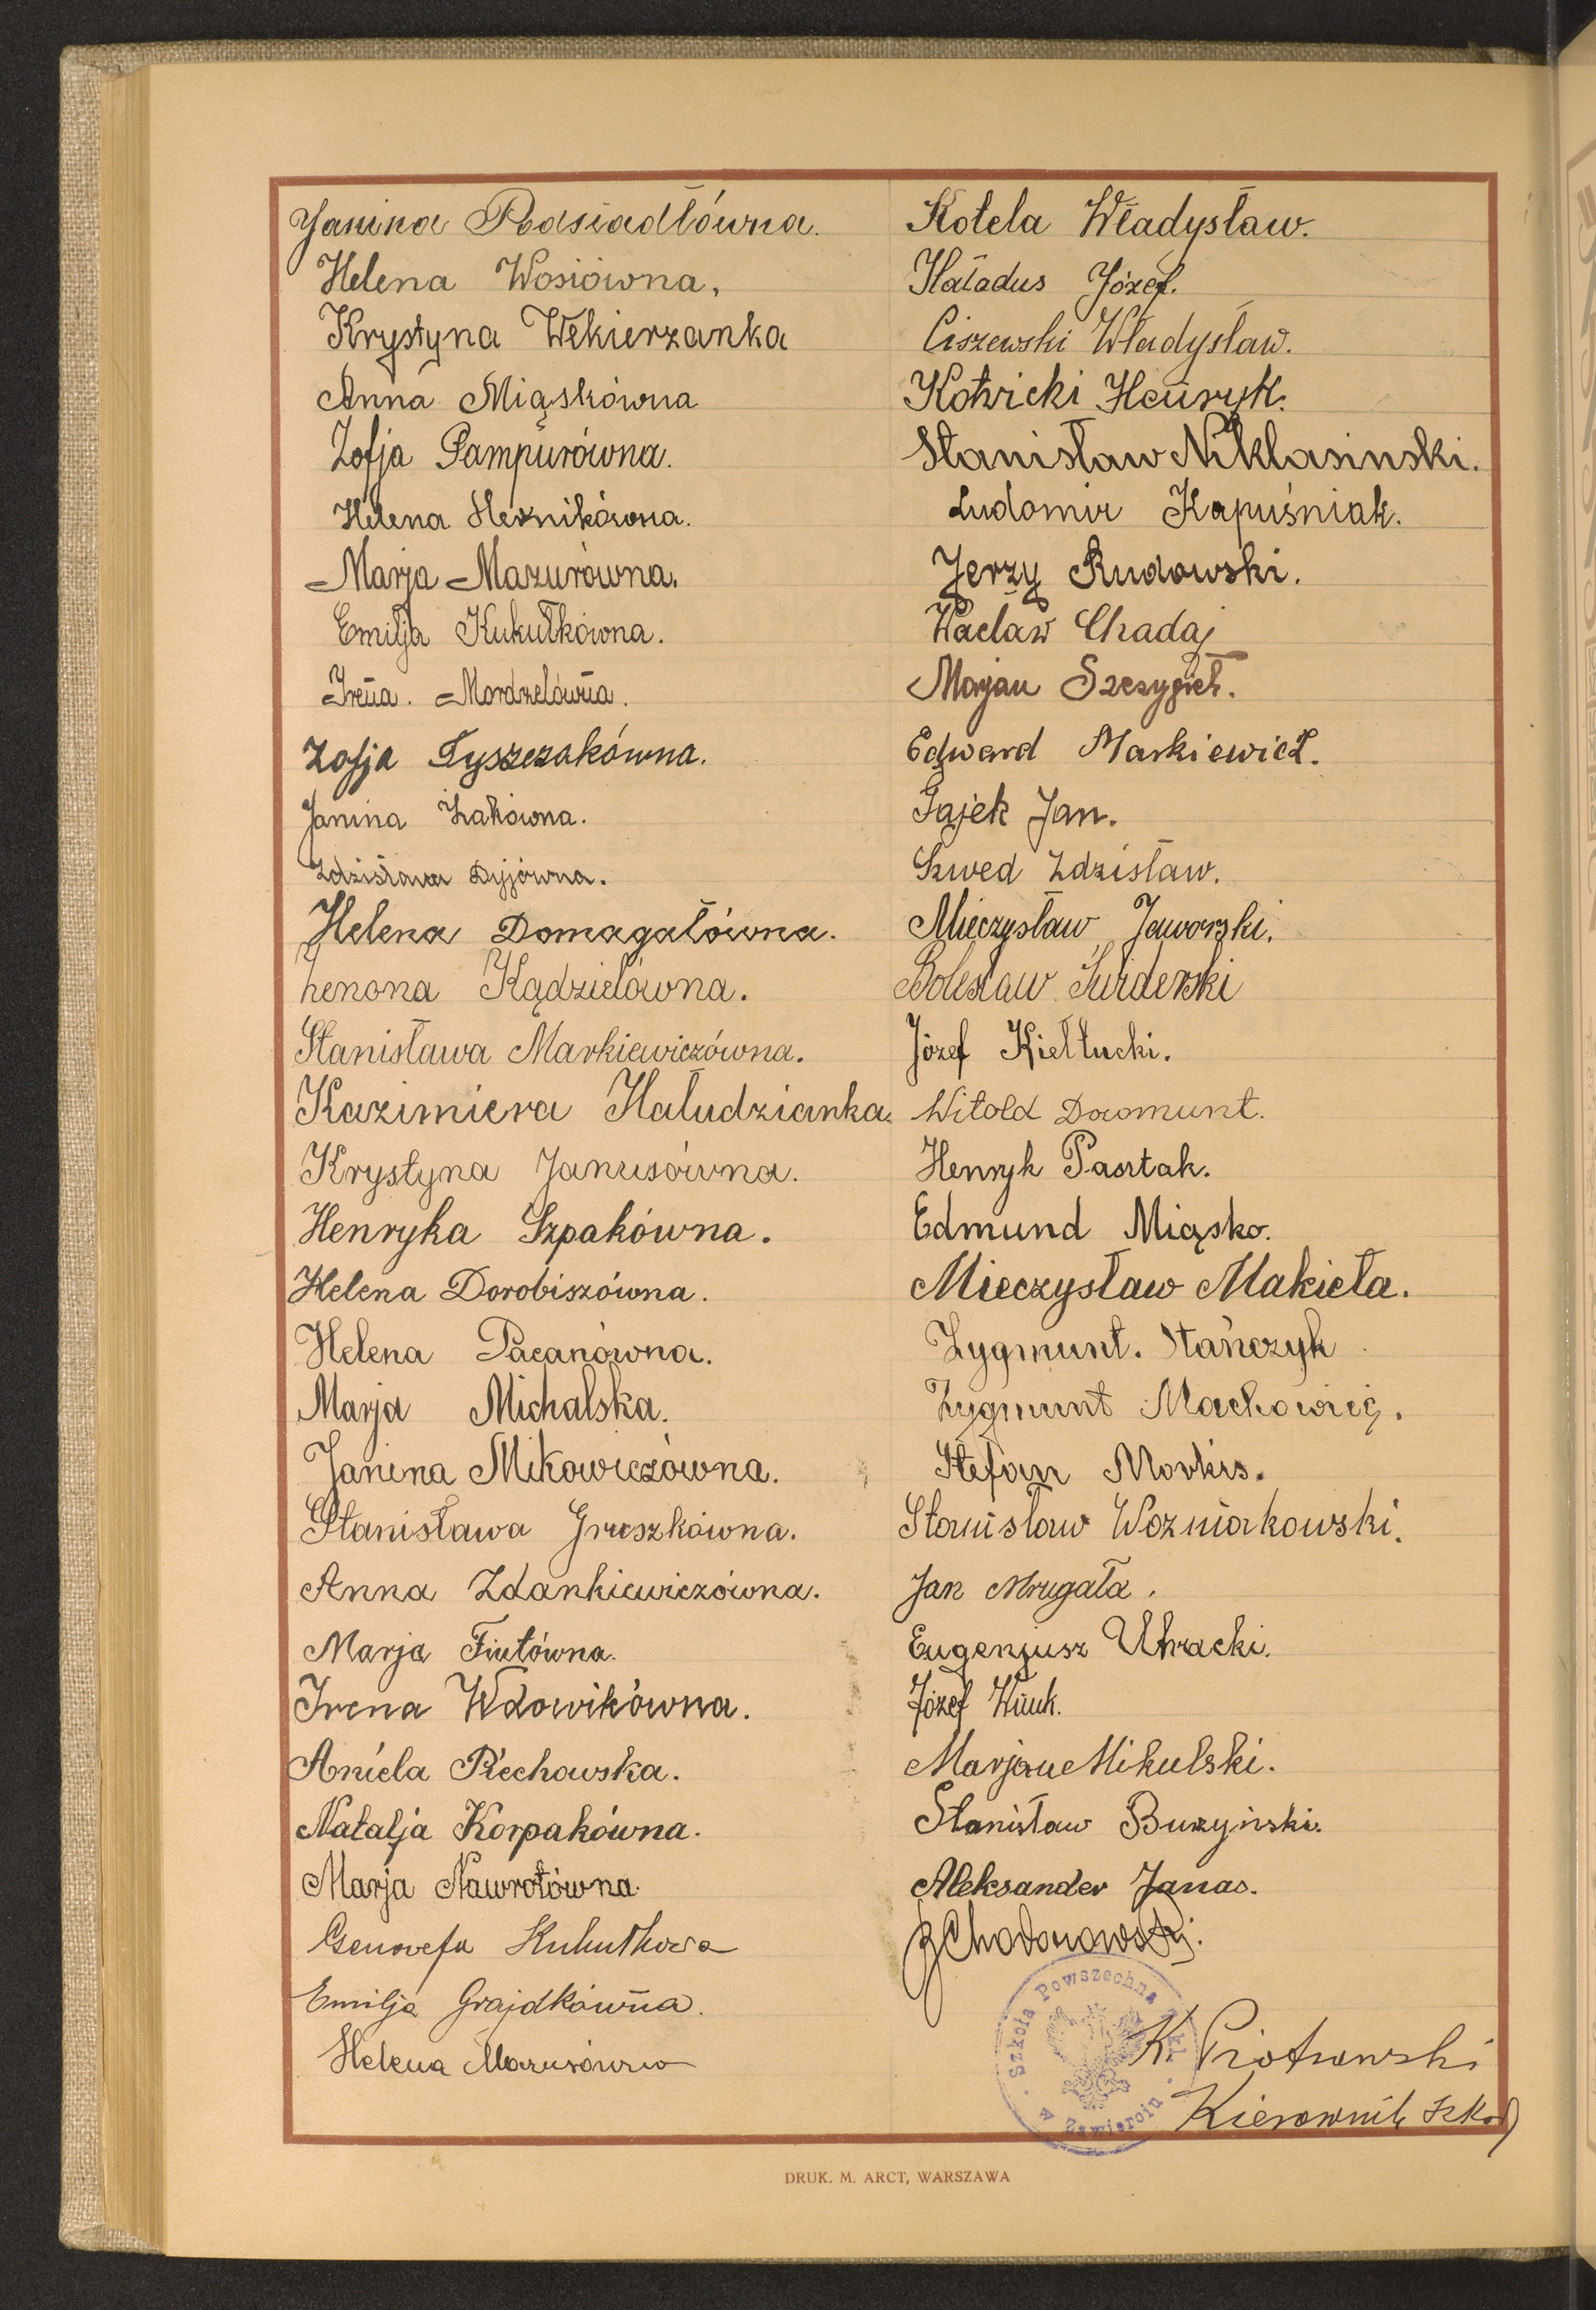 Janina Podsiadłówna.
Helena Wosiówna,
Krystyna Wekierzanka
Anna Miąskówna
Zofja Pampurówna.
Helena Hernikówna.
Marja Mazurówna.
Emilja Kukułkówna.
Irena. Mordzelówna.
Zofja Tyszczakówna.
Janina Żakówna.
Zdzisława Dyjówna.
Helena Domagałówna.
Zenona Kądzielówna.
Stanisława Markiewiczówna.
Kazimiera Haładzianka.
Krystyna Janusówna.
Henryka Szpakówna.
Helena Dorobiszówna.
Helena Pacanówna.
Marja Michalska.
Janina Mikowiczówna.
Stanisława Gruszkówna.
Anna Zdankiewiczówna.
Marja Fiutówna.
Irena Wdowikówna.
Aniela Piechowska.
Natalja Korpakówna.
Marja Nawrotówna.
Genowefa Kukułkowa
Emilja Grajdkówna.
Helena Mazurówna
Kotela Władysław.
Haładus Józef.
Ciszewski Władysław.
Kotwicki Henryk.
Stanisław Niklasinski.
Ludomir Kapuśniak.
Jerzy Rudowski.
Wacław Chadaj
Marjan Szczygieł.
Edward Markiewicz.
Gajek Jan.
Szwed Zdzisław.
Mieczysław Jaworski.
Bolesław Świderski
Józef Kiełtucki.
Witold Dowmunt.
Henryk Pasztak.
Edmund Miąsko.
Mieczysław Makieła.
Zygmunt. Stańczyk
Zygmunt
Stefan Morkis.
Stanisław Wozniakowski.
Jan Mrugała.
Eugenjusz Utracki.
Józef Wnuk.
Marjan Mikulski.
Stanisław Burzyński.
Aleksander Janas.
Chodorowski.
Szkoła Powszechna 7 kl.
w Zawierciu
K. Piotrowski
Kierownik Szkoły
DRUK. M. ARCT, WARSZAWA